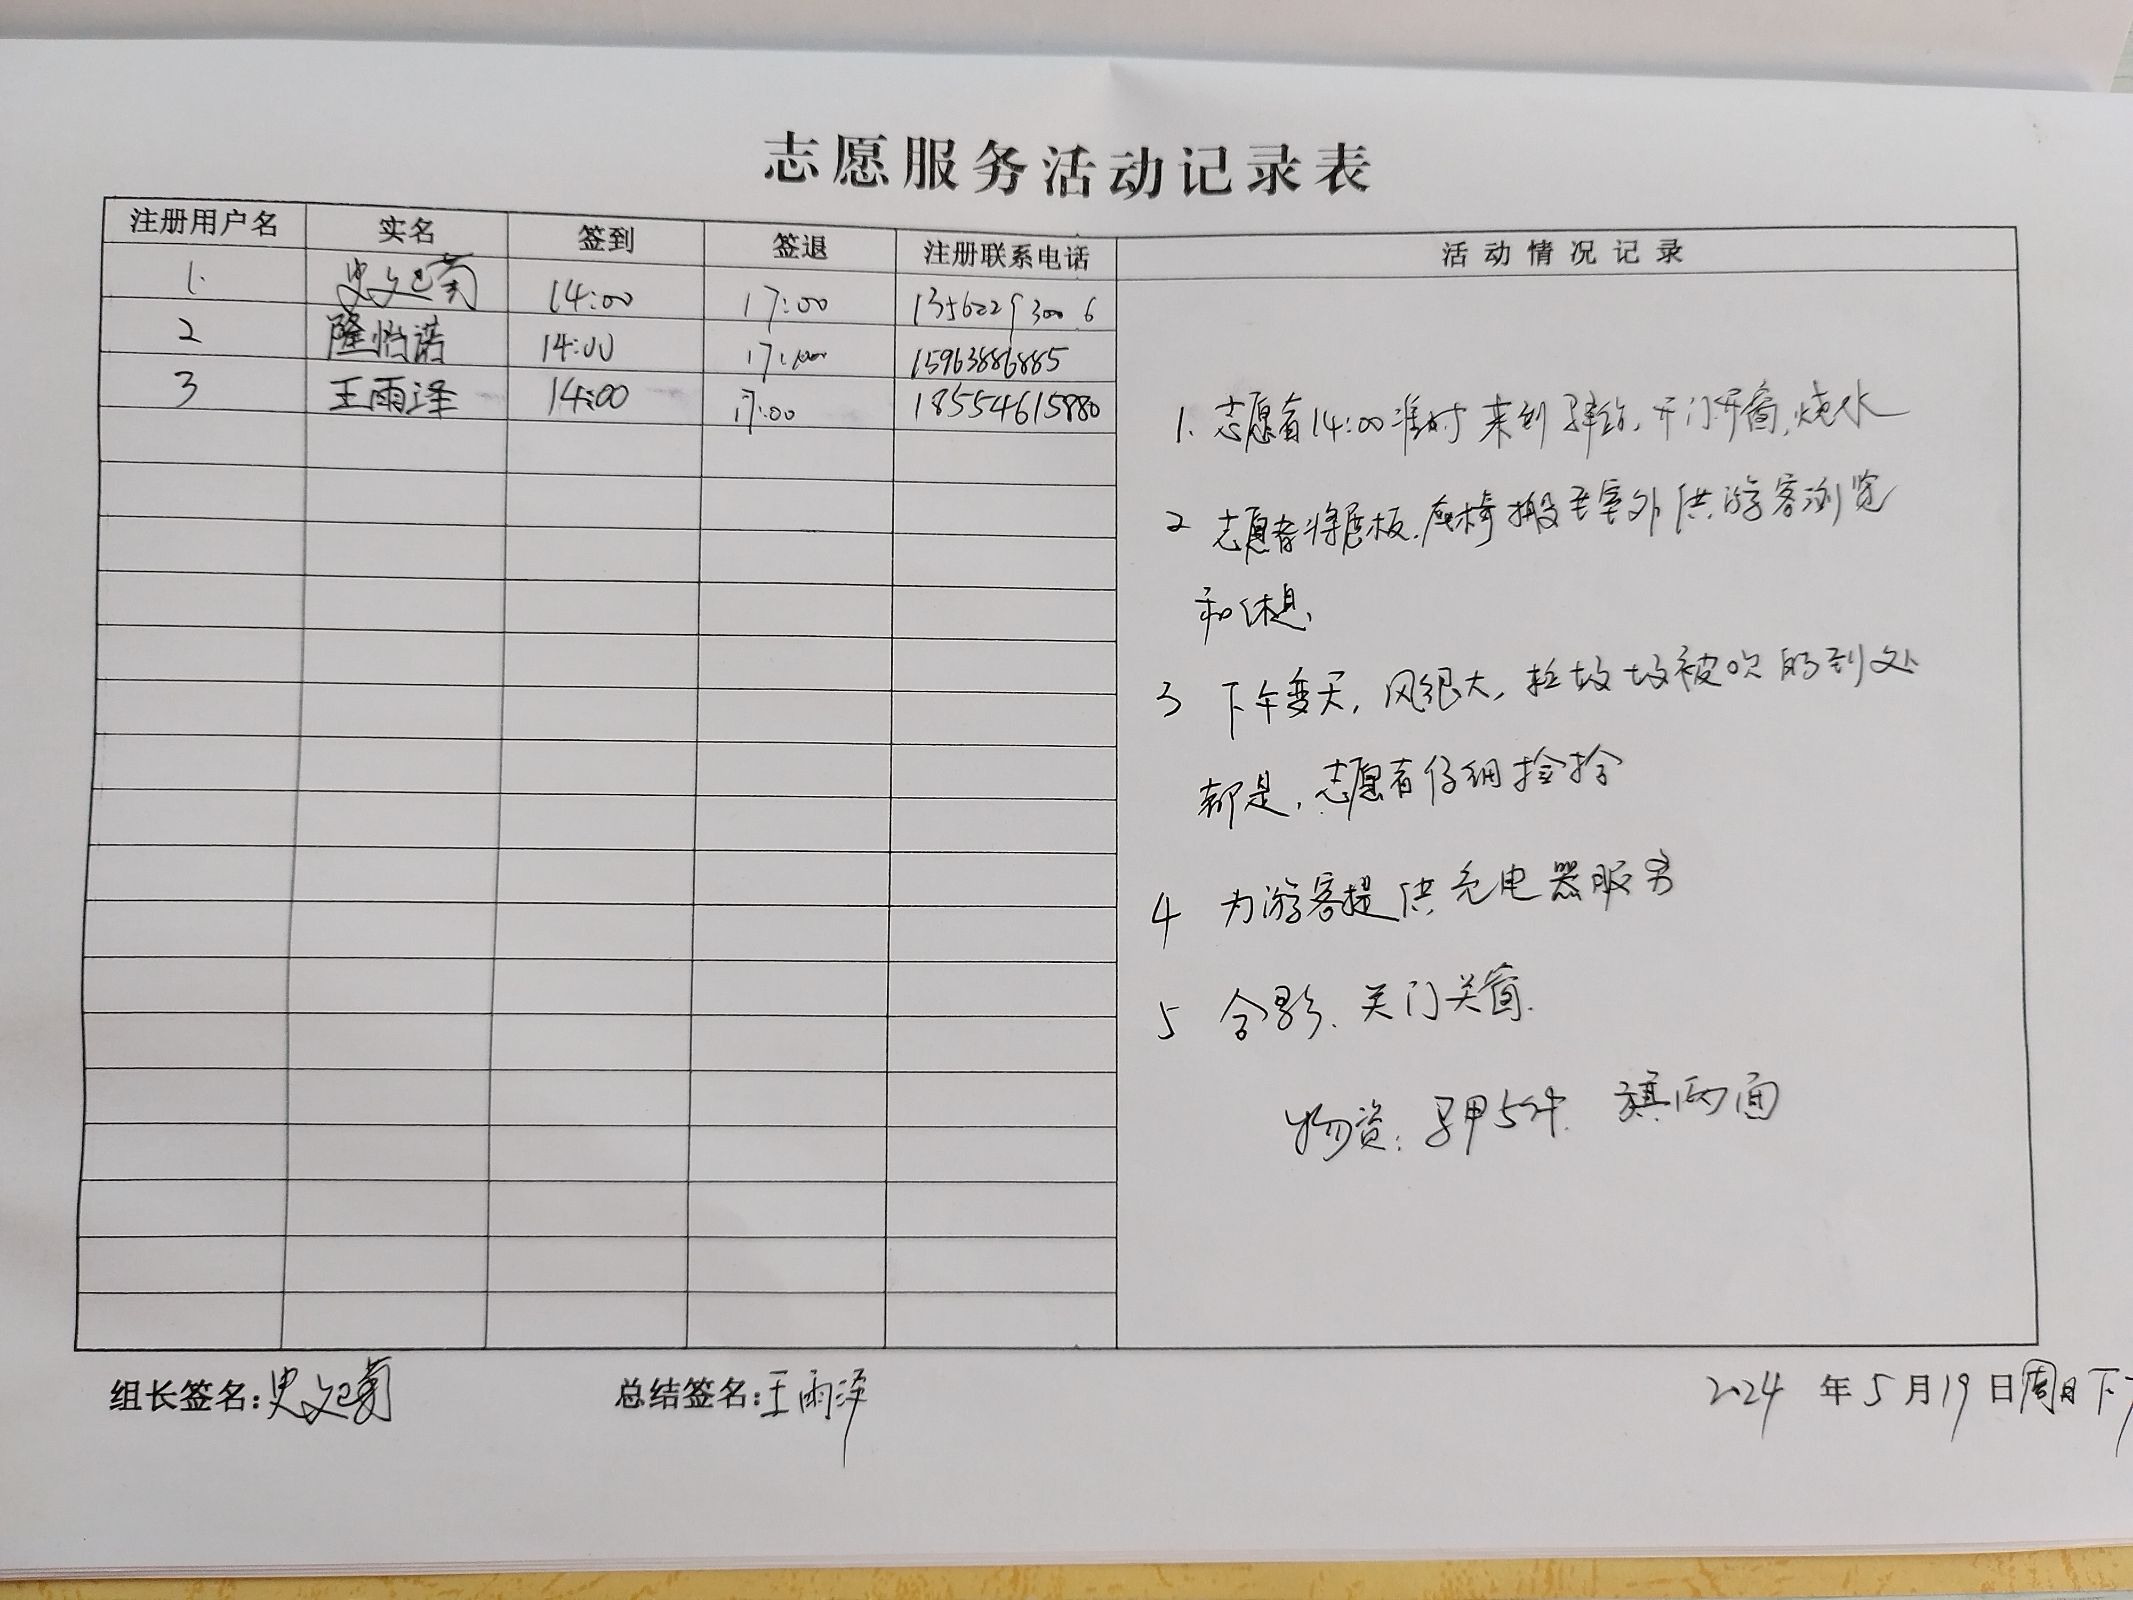 志愿服务活动记录表
注册用户名 实名 签到 签退 注册联系电话 活动情况记录
1. 史文菊 14:00 17:00 13562293006
2 隆怡诺 14:00 17:00 15963886885
3 王雨泽 14:00 17:00 18554615880
1. 志愿者14:00准时来到驿站，开门开窗，烧水
2 志愿者将展板、座椅搬至室外供游客浏览
和休息.
3 下午变天，风很大，垃圾被吹的到处
都是，志愿者仔细捡拾
4 为游客提供充电器服务
5 合影、关门关窗.
物资：马甲5件 旗两面
组长签名：史文菊 总结签名：王雨泽 2024年5月19日周日下